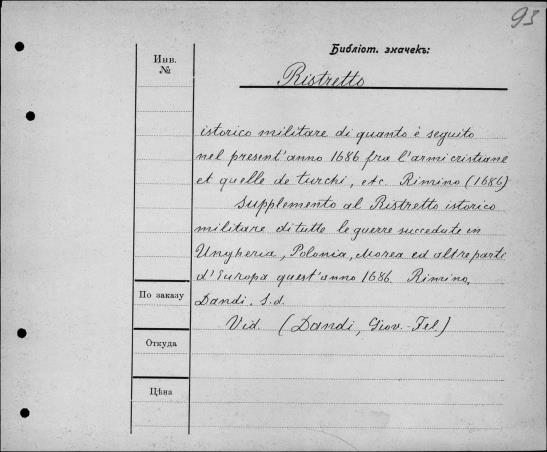 93
Библіот. значекъ:
Инв. №
Ristretto
istorico militare di quanto è seguito
nel present'anno 1686 fra l'armi cristiane
et quelle de turchi, etc. Rimino (1686)
Supplemento al Ristretto istorico
militare di tutte le guerre succedute in
Ungheria, Polonia, Morea ed altre parti
d'Europa quest'anno 1686. Rimino,
Dandi, S.d.
Vid. (Dandi, Giov.-Fel.)
По заказу
Откуда
Цѣна